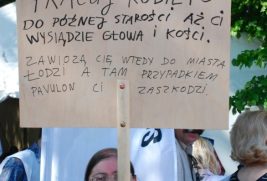 PRACUJ KOBIETO
DO PÓŹNEJ STAROŚCI AŻ CI
WYSIĄDZIE GŁOWA I KOŚCI.
ZAWIOZĄ CIĘ WTEDY DO MIASTA
ŁODZI A TAM PRZYPADKIEM
PAVULON CI ZASZKODZI.